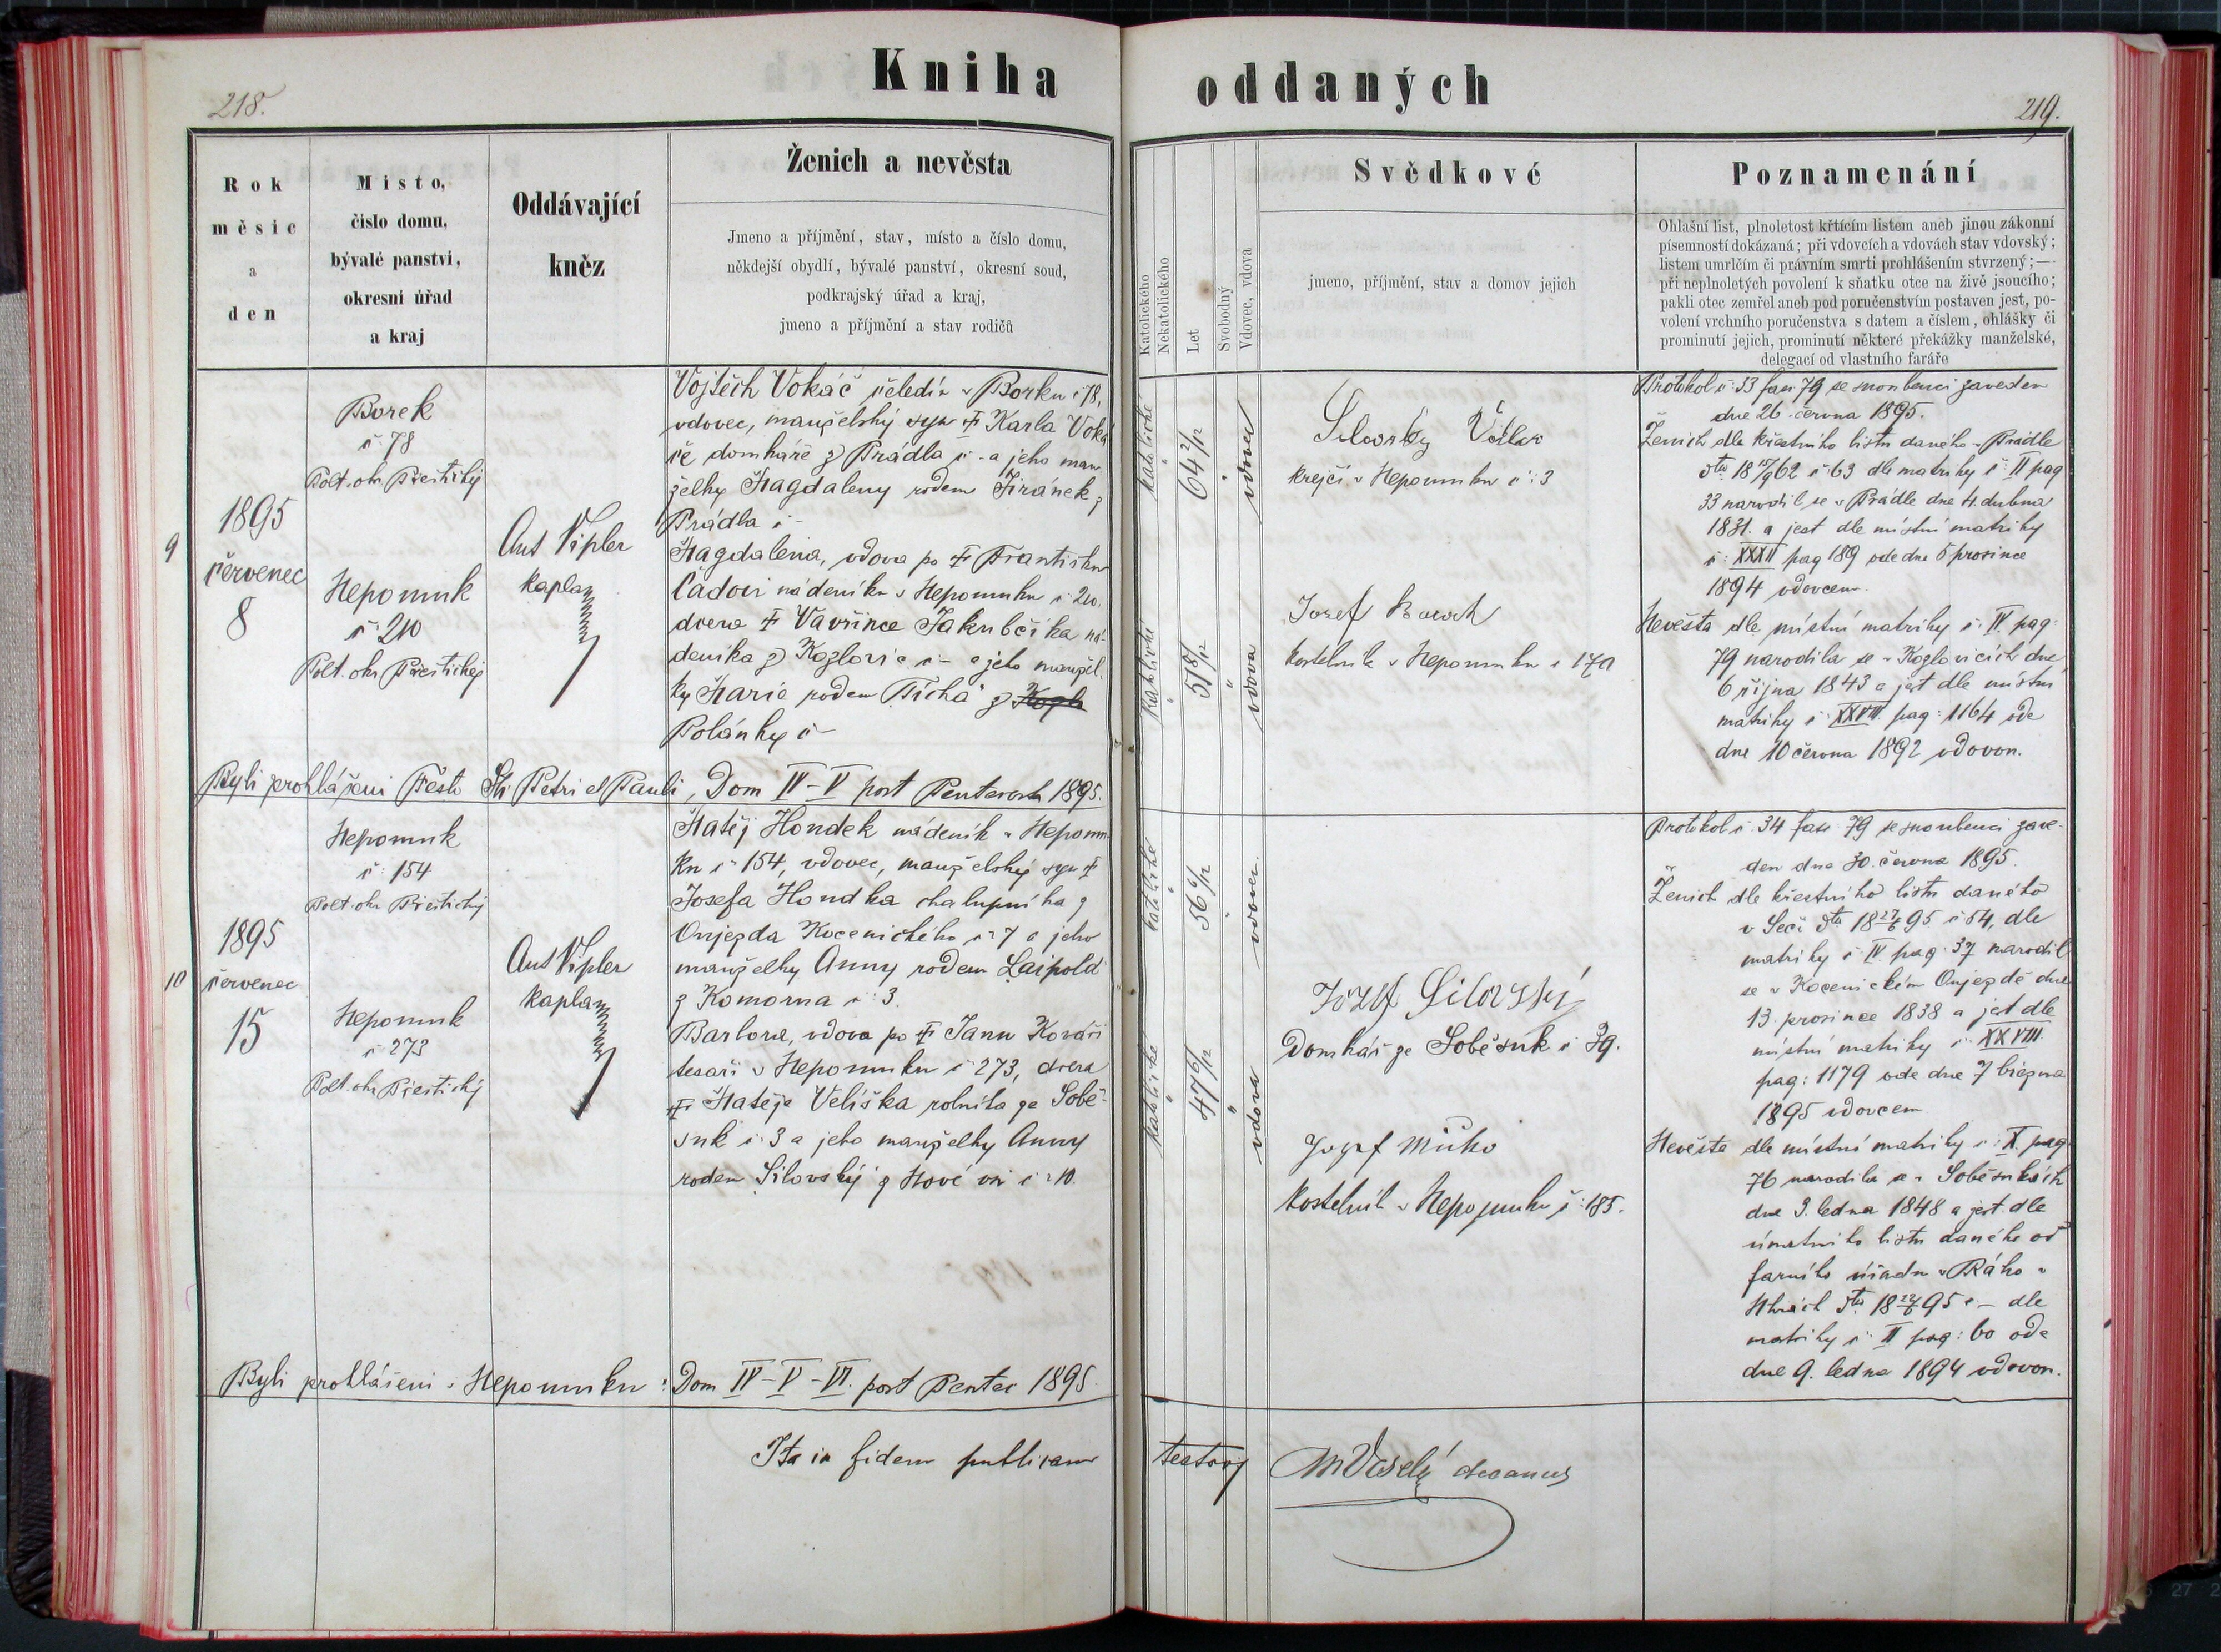 Kniha oddaných
218.
219.
Rok
měsíc
a
den
Místo,
číslo domu,
bývalé panství,
okresní úřad
a kraj
Oddávající
kněz
Ženich a nevěsta
Jmeno a příjmění, stav, místo a číslo domu,
někdejší obydlí, bývalé panství, okresní soud,
podkrajský úřad a kraj,
jmeno a příjmění a stav rodičů
Katolického
Nekatolického
Let
Svobodný
Vdovec, vdova
Svědkové
jmeno, příjmění, stav a domov jejich
Poznamenání
Ohlašní list, plnoletost křtícím listem aneb jinou zákonní
písemností dokázaná; při vdovcích a vdovách stav vdovský;
listem umrlčím či právním smrti prohlášením stvrzený;—
při neplnoletých povolení k sňatku otce na živě jsoucího;
pakli otec zemřel aneb pod poručenstvím postaven jest, po-
volení vrchního poručenstva s datem a číslem, ohlášky či
prominutí jejich, prominutí některé překážky manželské,
delegací od vlastního faráře
9
1895
červenec
8
Borek
č 78
Polt. okr Přeštický
Nepomuk
č 210
Polt. okr Přeštický
Ant Vipler
kaplan
Vojtěch Vokáč čeledín v Borku č 78,
vdovec, manželský syn † Karla Voká
če domkáře z Prádla č - a jeho man
želky Magdaleny rodem Jiránek z
Prádla č -
Magdalena, vdova po † Františku
Čadovi nádeníku v Nepomuku č 210.
dcera † Vavřince Jakubčíka ná-
deníka z Kozlovic č - a jeho manžel
ky Marie rodem Tichá z Kozl
Polánky č -
katolické
64 2/12
vdovec
katolické
51 8/12
vdova
Silovský Václav
krejčí v Nepomuku č: 3
Josef
kostelník v Nepomuku č 170
Protokol č: 33 fasc 79 se snoubenci zaveden
dne 26 června 1895.
Ženich dle křestního listu daného v Prádle
dto 18 62 č 63 dle matriky č: II pag
33 narodil se v Prádle dne 4. dubna
1831. a jest dle místní matriky
č: XXXII pag 189 ode dne 5 prosince
1894 vdovcem.
Nevěsta dle místní matriky č IV. pag:
79 narodila se v Kozlovicích dne
6 října 1843 a jest dle místní
matriky č XXVIII. pag: 1164 ode
dne 10 června 1892 vdovou.
Byli prohlášeni Festo Sti Petri et Pauli, Dom IV-V post Pentecost 1895.
10
1895
červenec
15
Nepomuk
č: 154
Polt. okr Přeštický
Nepomuk
č 273
Polt. okr Přeštický
Ant Vipler
kaplan
Matěj Hondek nádeník v Nepomu-
ku č 154, vdovec, manželský syn †
Josefa Hondka chalupníka z
Oujezda Kocenického č 7 a jeho
manželky Anny rodem Laipold
z Komorna č: 3.
Barbora, vdova po † Janu Kováři
tesaři v Nepomuku č 273, dcera
† Matěje Velíška rolníka ze Sobě-
suk č 3 a jeho manželky Anny
rodem Silovský z Nové vsi č: 10.
katolické
56 6/12
vdovec
katolické
47 6/12
vdova
Jozef Silovský
Domkář ze Soběsuk č 39.
Jozef Míčko
Kostelník v Nepomuku č: 185.
Protokol č. 34 fasc 79 se snoubenci zave-
den dne 30. června 1895.
Ženich dle křestního listu daného
v Seči dto 18 27/6 95 č 54, dle
matriky č IV pag: 37 narodil
se v Kocenickém Oujezdě dne
13. prosince 1838 a jest dle
místní matriky č: XXVIII
pag: 1179 ode dne 7 března
1895 vdovcem.
Nevěsta dle místní matriky č: X. pag
76 narodila se v Soběsukách
dne 3. ledna 1848 a jest dle
úmrtního listu daného od
farního úřadu v
dto 18 95 č - dle
matriky č: II pag: 60 ode
dne 9. ledna 1894 vdovou.
Byli prohlášeni v Nepomuku: Dom IV-V-VI. post Pentec 1895.
Ita in fidem publicam testor
M Veselý decanus